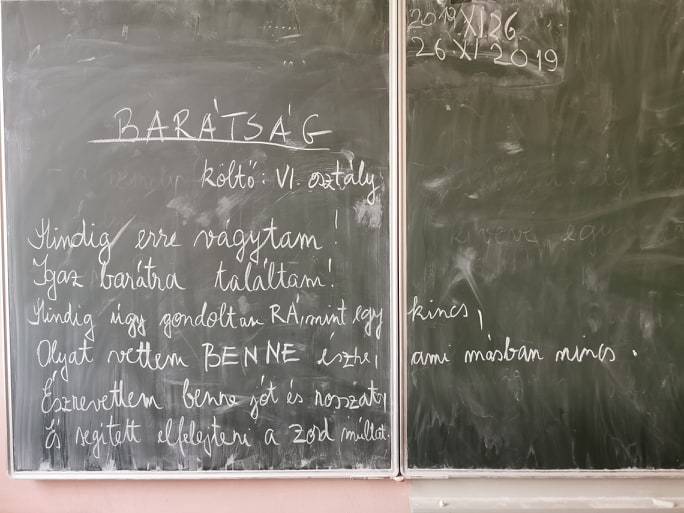 2019 XI 26
26 XI 2019
BARÁTSÁG
költő: VI. osztály
Mindig erre vágytam!
Igaz barátra találtam!
Mindig úgy gondoltam RÁ, mint egy kincs,
Olyat vettem BENNE észre, ami másban nincs.
Észrevettem benne jót és rosszat,
És segített elfelejteni a zord múltat.